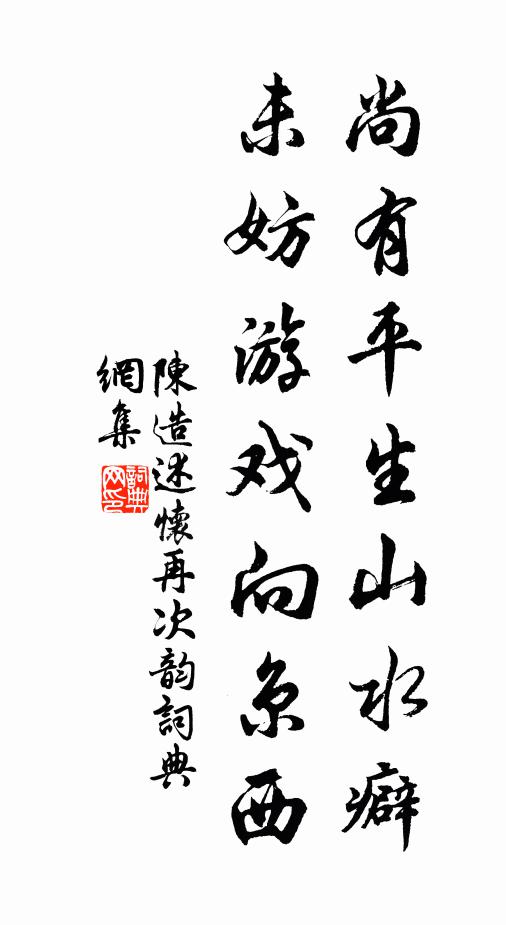 尚有平生山水癖
未妨游戏向京西
陳造述懷再次韵詞典
網集
詞典网印